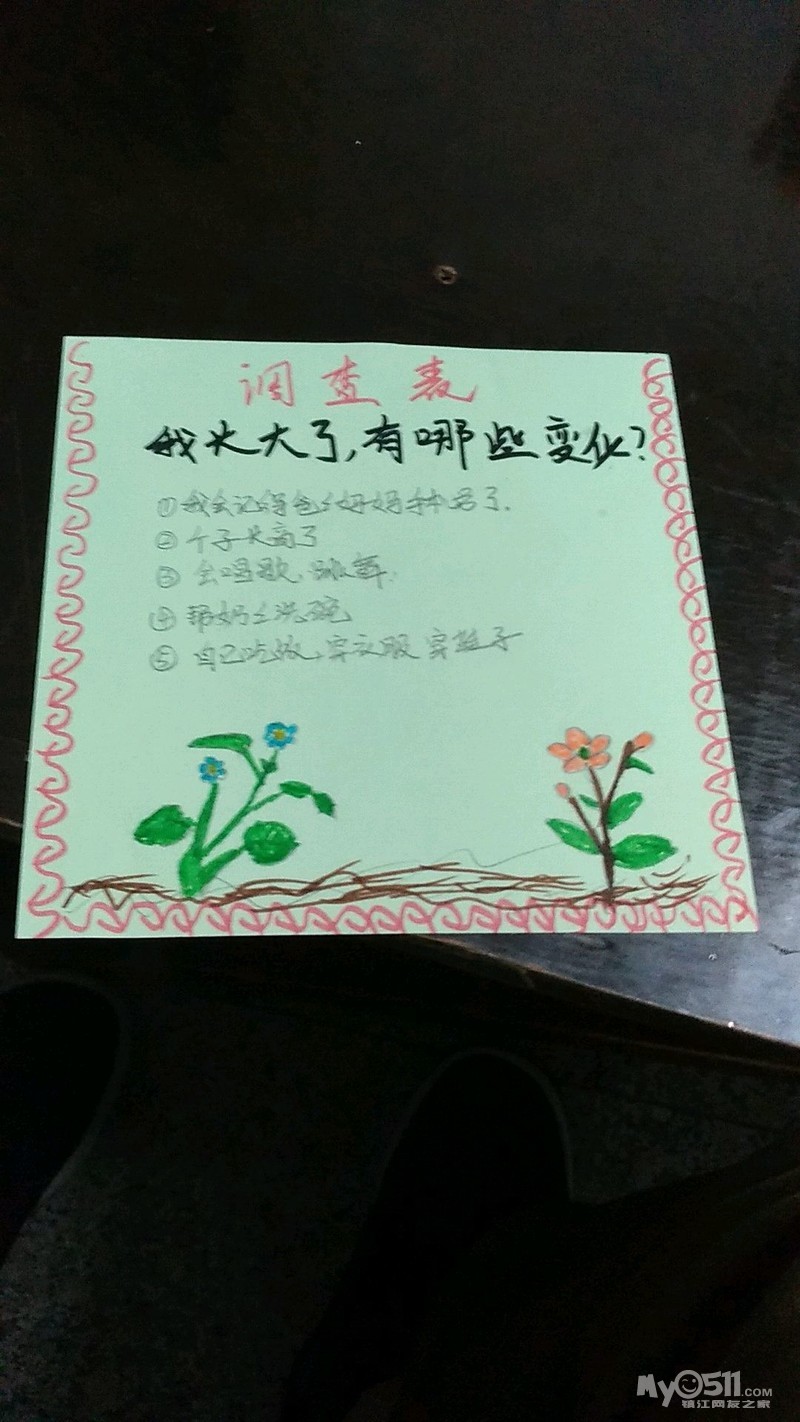 调查表
我长大了,有哪些变化?
①我会记得爸爸妈妈和老师了.
②个子长高了
③会唱歌,跳舞.
④帮奶奶洗碗
⑤自己吃饭,穿衣服穿鞋子
MY0511.COM
镇江网友之家